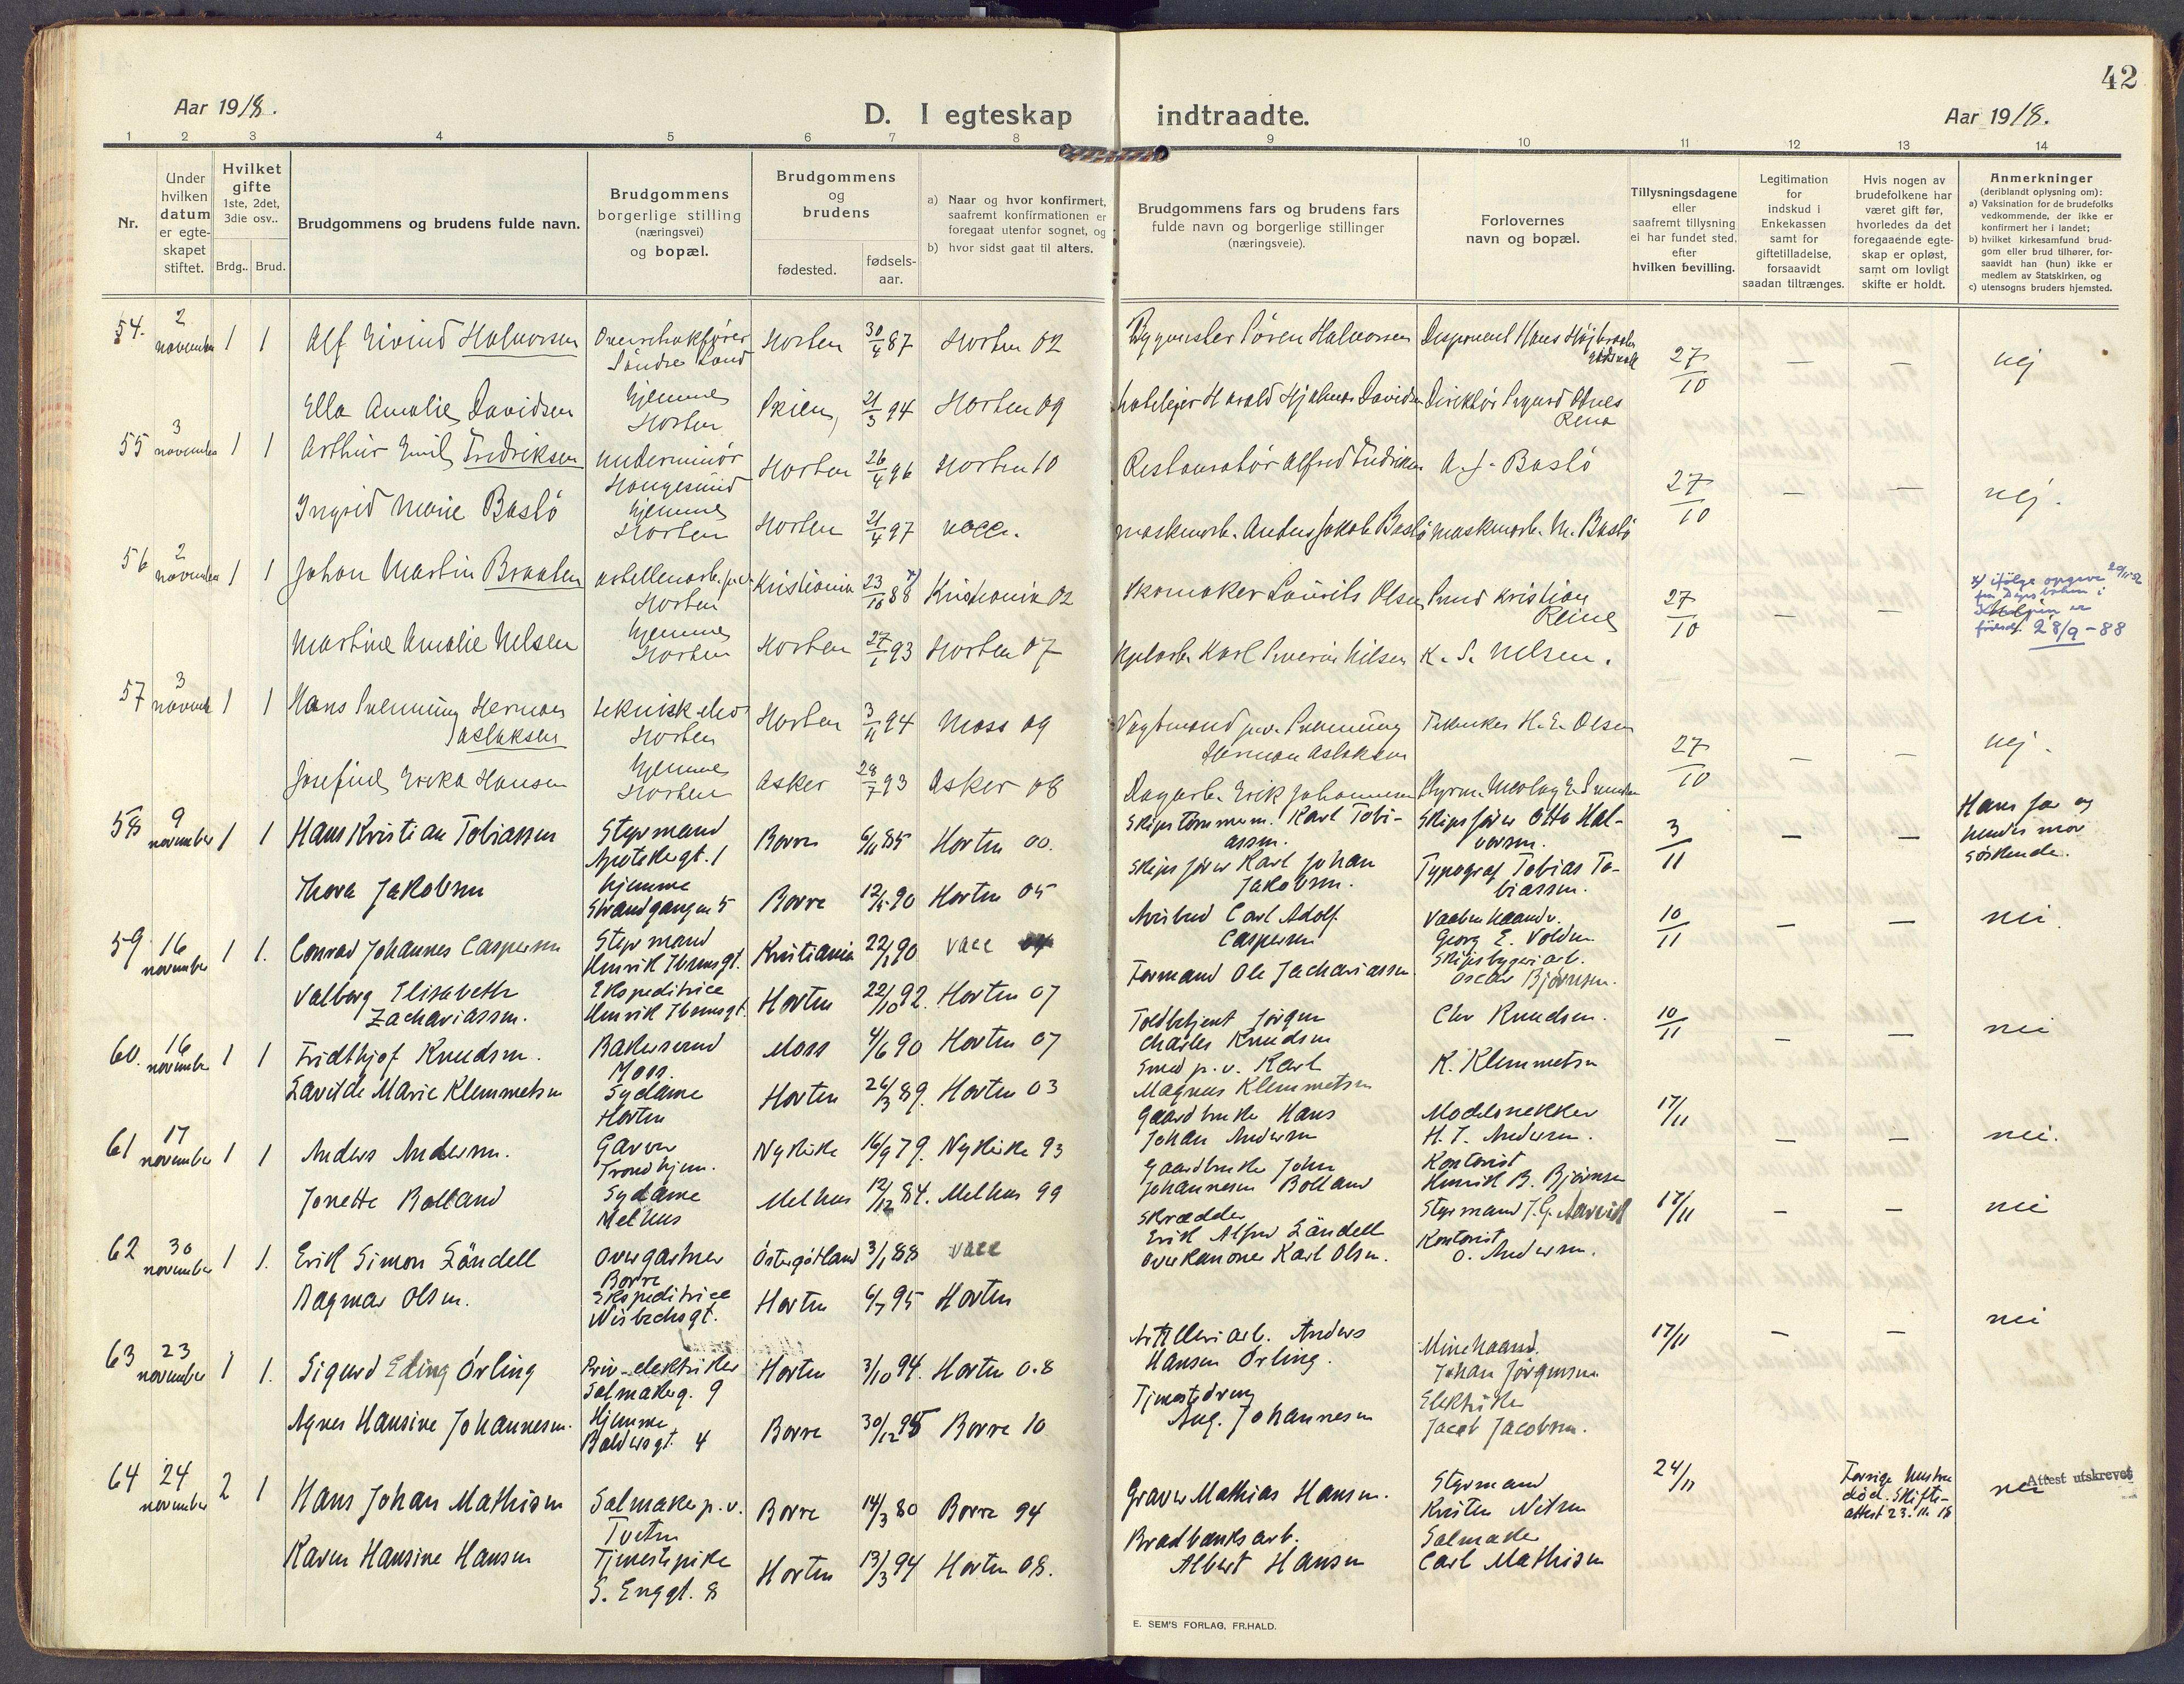 42
Aar 1918.
D. I egteskap indtraadte.
Aar 1918.
1 2 3 4 5 6 7 8 9 10 11 12 13 14
Nr.
Under hvilken datum er egteskapet stiftet.
Hvilket gifte 1ste, 2det, 3die osv..
Brdg.. Brud.
Brudgommens og brudens fulde navn.
Brudgommens borgerlige stilling (næringsvei) og bopæl.
Brudgommens og brudens
fødested. fødselsaar.
a) Naar og hvor konfirmert, saafremt konfirmationen er foregaat utenfor sognet, og
b) hvor sidst gaat til alters.
Brudgommens fars og brudens fars fulde navn og borgerlige stillinger (næringsveie).
Forlovernes navn og bopæl.
Tillysningsdagene eller saafremt tillysning ei har fundet sted, efter hvilken bevilling.
Legitimation for indskud i Enkekassen samt for giftetilladelse, forsaavidt saadan tiltrænges.
Hvis nogen av brudefolkene har været gift før, hvorledes da det foregaaende egteskap er opløst, samt om lovligt skifte er holdt.
Anmerkninger (deriblandt oplysning om):
a) Vaksination for de brudefolks vedkommende, der ikke er konfirmert her i landet;
b) hvilket kirkesamfund brudgom eller brud tilhører, forsaavidt han (hun) ikke er medlem av Statskirken, og
c) utensogns bruders hjemsted.
54. 2 november 1 1 Alf Eivind Halvorsen Søndre Land Horten 30/4 87 Horten 02 Bygmester Søren Halvorsen Disponent Hans 27/10 — — nej
Ella Amalie Davidsen hjemme Horten Skien 21/3 94 Horten 09 Harald Hjalmar Davidsen Direktør Sigurd Rena
55 3 november 1 1 Arthur Emil Fredriksen underminör Haugesund Horten 26/4 96 Horten 10 Restauratör Alfred Fredriksen A. J. Baslö 27/10 — — nej.
Ingrid Marie Baslö hjemme Horten Horten 21/4 97 vacc. maskinarb. Anders Jakob Baslö maskinarb. M. Baslö
56 2 november 1 1 Johan Martin Braaten Horten Kristiania 23/10 88 x) Kristiania 02 Skomaker Laurits Olsen Smed Kristian Reine 27/10 — — x) ifölge opgave fra er födsel. 28/9-88
Martine Amalie Nilsen hjemme Horten Horten 27/1 93 Horten 07 Karl Severin Nilsen K. S. Nilsen.
57 3 november 1 1 Hans Svenning Herman Aslaksen teknisk elev Horten Horten 3/11 94 Moss 09 Vagtmand p.v. Svenning Herman Aslaksen Tekniker H. E. Olsen 27/10 — — nej.
Josefine Erika Hansen hjemme Horten Asker 28/7 93 Asker 08 Dagarb. Erik Johannesen
58 9 november 1 1 Hans Kristian Tobiassen Styrmand Apotekergt. 1 Borre 6/11 85 Horten 00. Skipstömmerm. Karl Tobiassen. Skipsförer Otto Halvorsen. 3/11 — — Hans far og hendes mor söskende.
Thora Jakobsen hjemme Strandgangen 5 Borre 12/5 90 Horten 05 Skipsförer Karl Johan Jakobsen. Typograf Tobias Tobiassen.
59 16 november 1 1. Conrad Johannes Caspersen Styrmand Henrik Ibsensgt. Kristiania 22/1 90 vacc Avisbud Carl Adolf Caspersen Vaabenhaandv. Georg E. Volden 10/11 — — nei.
Valborg Elisabeth Zachariassen. Ekspeditrice Henrik Ibsensgt. Horten 22/10 92. Horten 07 Formand Ole Zachariassen. Skipsbyggeriarb. Oscar Bjørnsen.
60. 16 november 1 1 Fridthjof Knudsen. Bakersvend Moss. Moss 4/6 90 Horten 07 Toldbetjent Jörgen Charles Knudsen Chr Knudsen. 10/11 — — nei
Lavilde Marie Klemmetsen Sydame Horten Horten 26/3 89. Horten 03 Smed p.v. Karl Magnus Klemmetsen K. Klemmetsen
61 17 november 1 1 Anders Andersen. Garver Trondhjem. Nykirke 16/9 79. Nykirke 93 Gaardbruker Hans Johan Andersen Modelsnekker H. J. Andersen. 17/11 — — nei.
Jonette Bolland Sydame Melhus Melhus 12/12 84. Melhus 99 Gaardbruker John Johannesen Bolland Kontorist Henrik B. Björnsen
62 30 november 1 1. Erik Simon Ländell Overgartner Borre Östergötland 3/1 88 vacc Skrædder Erik Alfred Ländell Styrmand J. G. 17/11 — — nei
Dagmar Olsen. Ekspeditrice Horten 6/7 95 Horten Overkanoner Karl Olsen. Kontorist O. Andersen.
63 23 november 1 1. Sigurd Eding Örling Priv-elektriker Salmakerg. 9 Horten 3/10 94. Horten 0.8 Artilleriarb. Anders Hansen Örling. Minehaand. Johan Jörgensen 17/11 — — nei
Agnes Hansine Johannesen. Hjemme Baldersgt. 4 Borre 30/12 95 Borre 10 Tjenestedreng Aug. Johannesen Elektriker Jacob Jacobsen.
64 24 november 2 1 Hans Johan Mathisen Salmaker p.v. Tveten Borre 14/3 80 Borre 94 Graver Mathias Hansen. Styrmand Kristen Nilsen 24/11 Forrige hustru död. Skifteattest 23.11.18 nei Attest utskrevet
Karen Hansine Hansen Tjenestepike S. Enggt. 8 Horten 13/3 94 Horten 08. Bradbænksarb. Albert Hansen Salmaker Carl Mathisen
E. SEM'S FORLAG, FR.HALD.